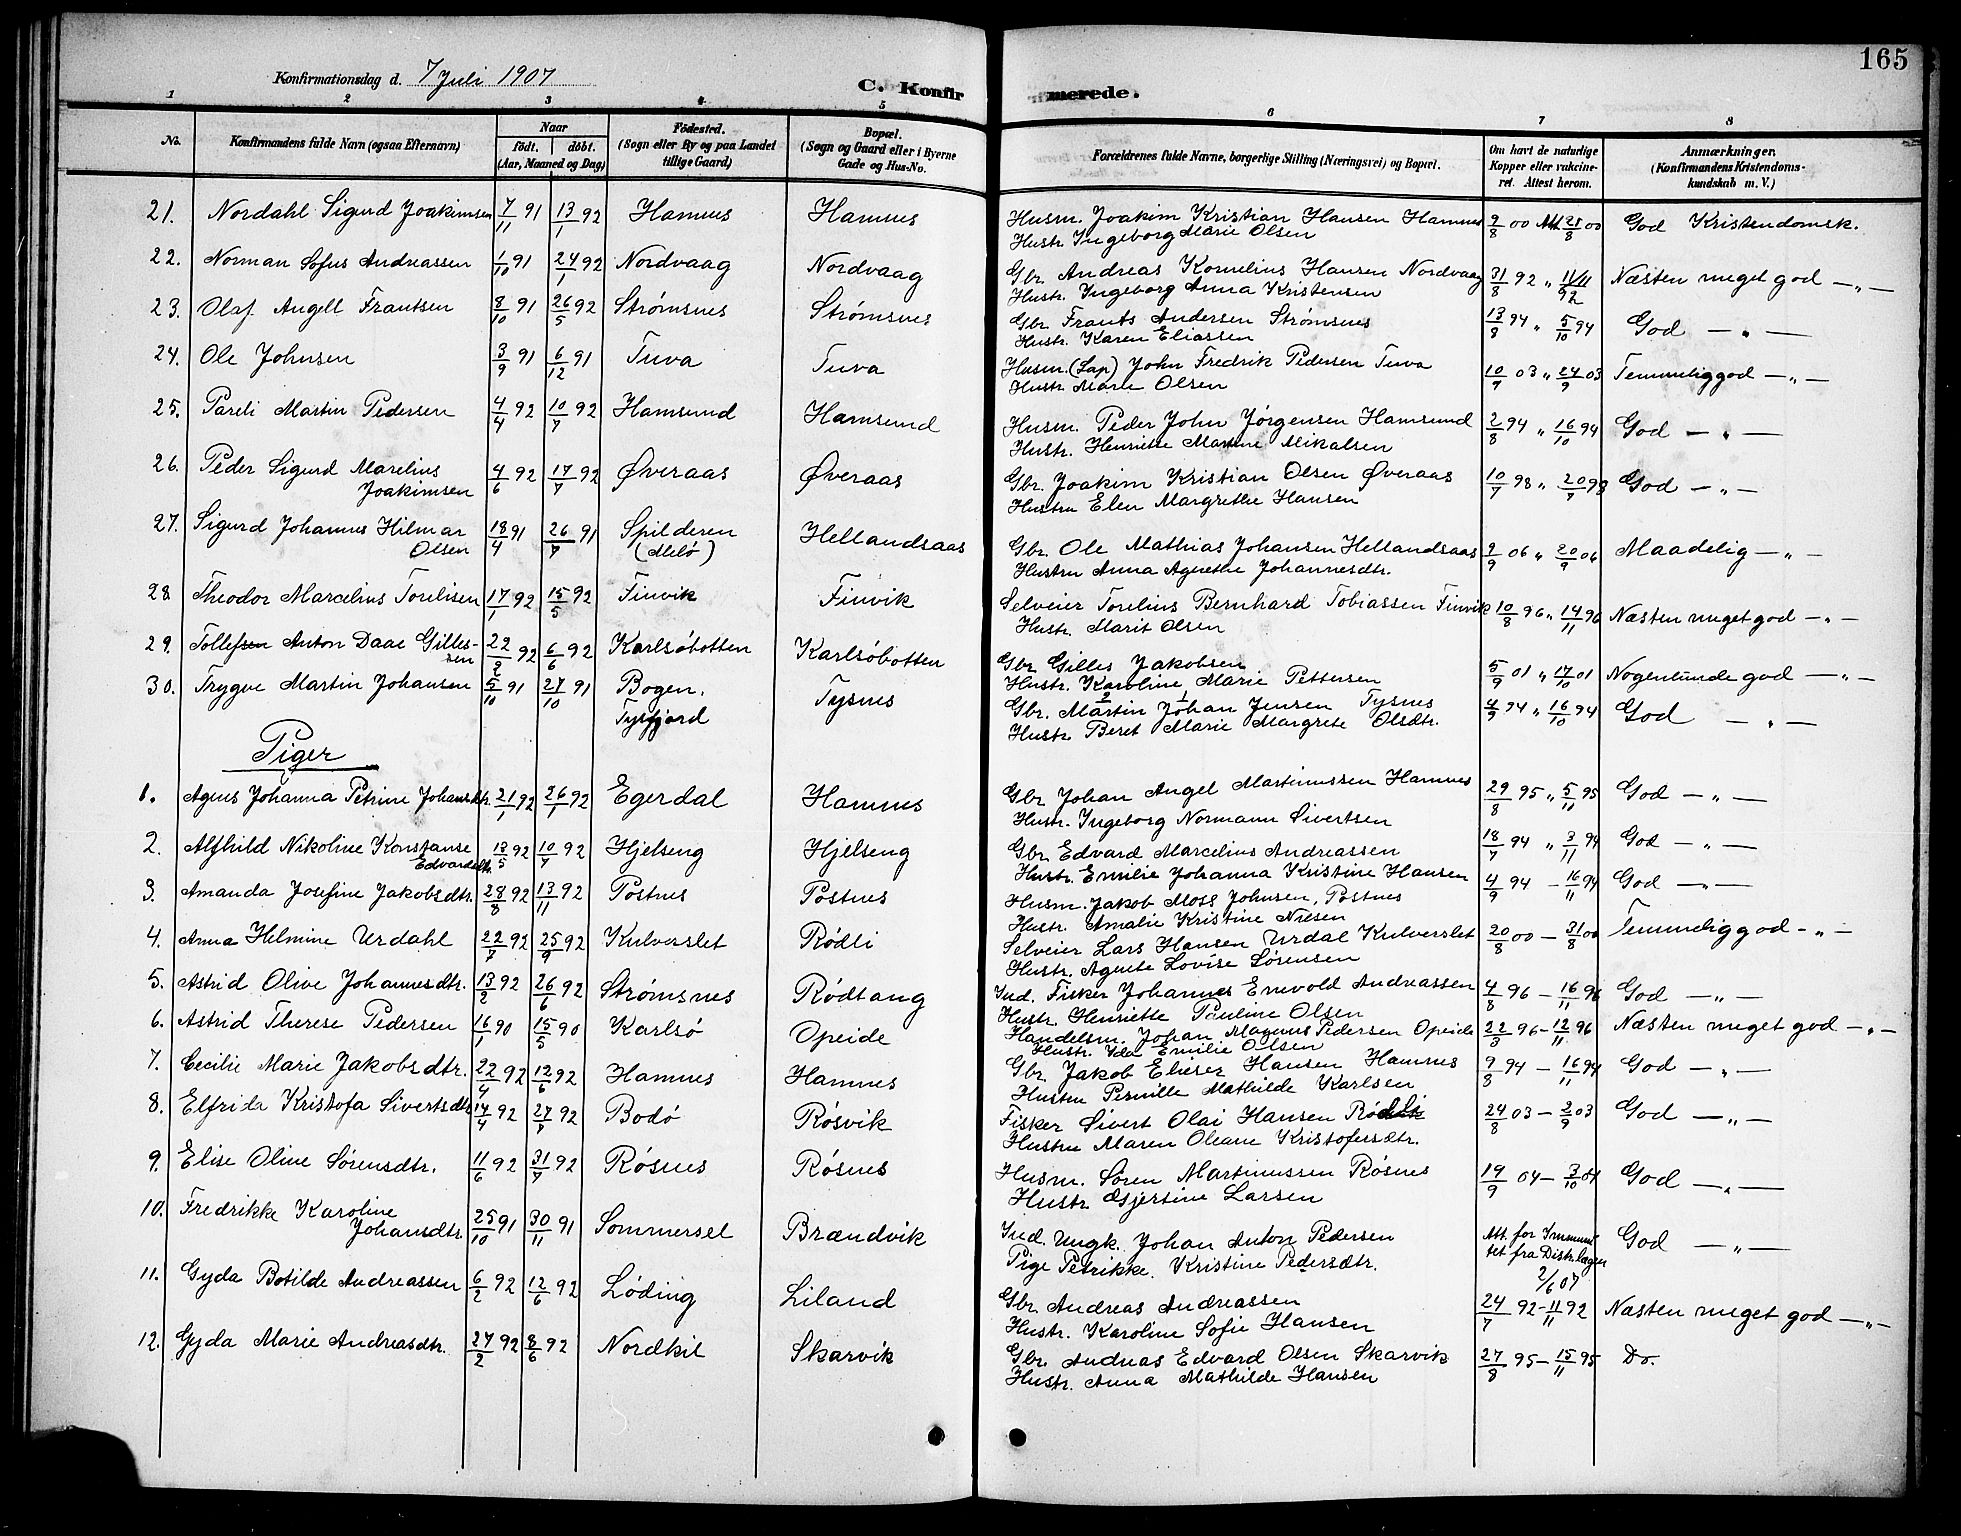 165
Konfirmationsdag d. 7 Juli 1907
C. Konfirmerede.
1 2 3 4 5 6 7 8
No. Konfirmandens fulde Navn (ogsaa Efternavn) Naar födt. döbt. (Aar, Maaned og Dag) Födested. (Sogn eller By og paa Landet tillige Gaard) Bopæl. (Sogn og Gaard eller i Byerne Gade og Hus-No. Forældrenes fulde Navne, borgerlige Stilling (Næringsvei) og Bopæl. Om havt de naturlige Kopper eller vakcineret. Attest herom. Anmærkninger. (Konfirmandens Kristendomskundskab m. V.)
21. Nordahl Sigurd Joakimsen 7/11 91 13/1 92 Hamnes Hamnes Husm. Joakim Kristian Hansen Hamnes 9/8 00 Att 21/8 00 God Kristendomsk.
Hustr Ingeborg Marie Olsen
22. Norman Sofus Andreassen 1/10 91 24/1 92 Nordvaag Nordvaag Gbr. Andreas Kornelius Hansen Nordvaag 31/8 92 " 11/11 92 Næsten meget god — " —
Hustr. Ingeborg Anna Kristensen
23. Olaf Angell Frantsen 8/10 91 26/5 92 Strømsnes Strømsnes Gbr. Frants Andersen Strømsnes 13/8 94 " 5/10 94 God — " —
Hustr. Karen Eliassen
24. Ole Johnsen 3/9 91 6/12 91 Tuva Tuva Husm. (Lap) John Fredrik Pedersen Tuva 10/7 03 " 24/9 03 Temmelig god — " —
Hustr. Marie Olsen
25. Pareli Martin Pedersen 4/4 92 10/7 92 Hamsund Hamsund Husm. Peder John Jørgensen Hamsund 2/8 94 " 16/10 94 God — " —
Hustr. Henriette Martine Mikalsen
26. Peder Sigurd Marelius Joakimsen 4/6 92 17/7 92 Øveraas Øveraas Gbr. Joakim Kristian Olsen Øveraas 10/7 98 " 20/9 98 God — " —
Hustru Elen Margrethe Hansen
27. Sigurd Johannes Hilmar Olsen 18/4 91 26/7 91 Spilderen (Melö) Hellandsaas Gbr. Ole Mathias Johansen Hellandsaas 9/9 06 " 20/9 06 Maadelig — " —
Hustru Anna Agnethe Johannesdtr.
28 Theodor Marcelius Torelisen 17/1 92 15/5 92 Finvik Finvik Selveier Torelius Bernhard Tobiassen Finvik 10/8 96 " 14/11 96 Næsten meget god — " —
Hustr. Marit Olsen
29. Tollefsen Anton Daae Gillessen 22/2 92 6/6 92 Karlsöbotten Karlsöbotten Gbr Gilles Jakobsen 5/9 01 " 17/10 01 Nogenlunde god — " —
Hustr. Karoline Marie Pettersen
30. Trygve Martin Johansen 5/10 91 27/10 91 Bogen, Tysfjord Tysnes Gbr. Martin Johan Jensen Tysnes 4/9 94 " 16/10 94 God — " —
Hustr. Beret Marie Margrete Olsdtr.
Piger
1. Agnes Johanna Petrine Johansdtr. 21/1 92 26/1 92 Egerdal Hamnes Gbr Johan Angel Martinussen Hamnes 29/8 95 " 5/11 95 God — " —
Hustr. Ingeborg Normann Sivertsen
2. Alfhild Nikoline Konstanse Edvardsdtr. 13/5 92 10/7 92 Hjelseng Hjelseng Gbr Edvard Marcelius Andreassen 18/7 94 " 3/11 94 God — " —
Hustr. Emilie Johanna Kristine Hansen
3. Amanda Josefine Jakobsdtr. 28/8 92 13/11 92 Postnes Postnes Husm. Jakob Moss Johnsen, Postnes 4/9 94 — 16/11 94 God — " —
Hustr. Amalie Kristine Nilsen
4. Anna Helmine Urdahl 22/7 92 25/9 92 Kulverslet Rödli Selveier Lars Hansen Urdal Kulverslet 20/8 00 — 31/8 00 Temmelig god — " —
Hustr. Agnete Lovise Sørensen
5. Astrid Olive Johannesdtr. 13/2 92 26/6 92 Strømsnes Rödtang Ind. Fisker Johannes Enevold Andreassen 4/8 96 — 16/11 96 God — " —
Hustr. Henriette Pauline Olsen
6. Astrid Therese Pedersen 16/1 90 15/5 90 Karlsö Opeide Handelsm. Johan Magnus Pedersen Opeide 22/8 96 — 12/11 96 Næsten meget god — " —
Hustr. Ida Emilie Olsen
7. Cecilie Marie Jakobsdtr. 22/4 92 12/6 92 Hamnes Hamnes Gbr. Jakob Elieser Hansen Hamnes 9/8 94 — 16/11 94 God — " —
Hustru Pernille Mathilde Karlsen
8. Elfrida Kristofa Sivertsdtr 14/4 92 27/7 92 Bodö Rösvik Fisker Sivert Olai Hansen Rödli 24/8 03 — 2/9 03 God — " —
Hustru Maren Oleane Kristofersdtr.
9. Elise Oline Sörensdtr. 11/6 92 31/7 92 Rösnes Rösnes Husm. Sören Martinussen Rösnes 19/9 04 — 3/10 04 God — " —
Hustr Gjertine Larsen
10. Fredrikke Karoline Johansdtr. 25/10 91 30/11 91 Sommersel Brændvik Ind. Ungk. Johan Anton Pedersen Att. for Immunitet fra Distr.lægen 2/6 07 God — " —
Pige Petrikke Kristine Pedersdtr.
11. Gyda Botilde Andreassen 6/2 92 12/6 92 Løding Liland Gbr. Andreas Andreassen 24/7 92 — 11/11 92 Næsten meget god — " —
Hustr. Karoline Sofie Hansen
12. Gyda Marie Andreasdtr. 27/2 92 8/6 92 Nordkil Skarvik Gbr. Andreas Edvard Olsen Skarvik 27/8 95 — 15/11 95 Do.
Hustr. Anna Mathilde Hansen